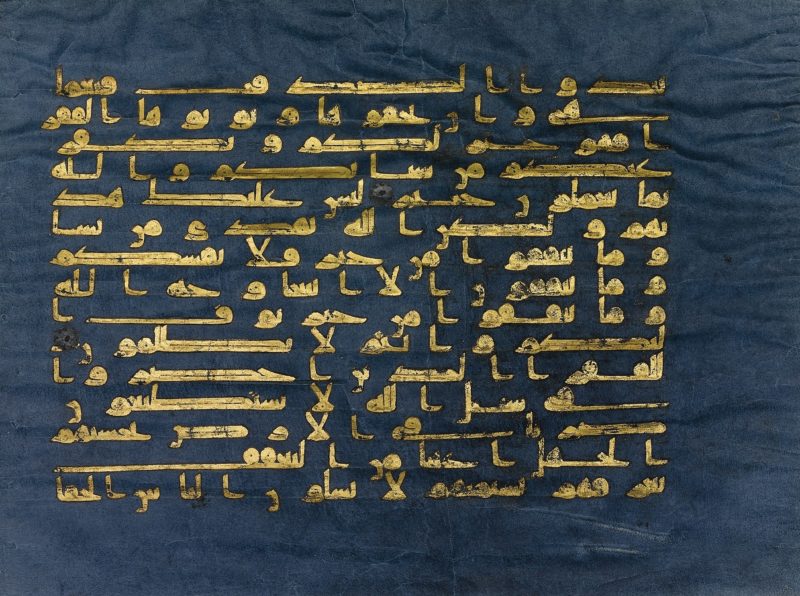 تبدوا الصدقت فنعما
هي وان تخفوها وتوتوها الفقر
ا فهو خير لكم ويكفر
عنكم من سياتكم والله
بما تعملون خبير ليس عليك هد
يهم ولكن الله يهدي من يشا
وما تنفقوا من خير فلانفسكم
وما تنفقون الا ابتغا وجه الله
وما تنفقوا من خير يوف ا
ليكم وانتم لا تظلمون
للفقرا الذين احصروا
في سبيل الله لا يستطيعون
ضربا في الارض يحسبهم
الجهل اغنيا من التعفف
تعرفهم بسيمهم لا يسلون الناس الحافا